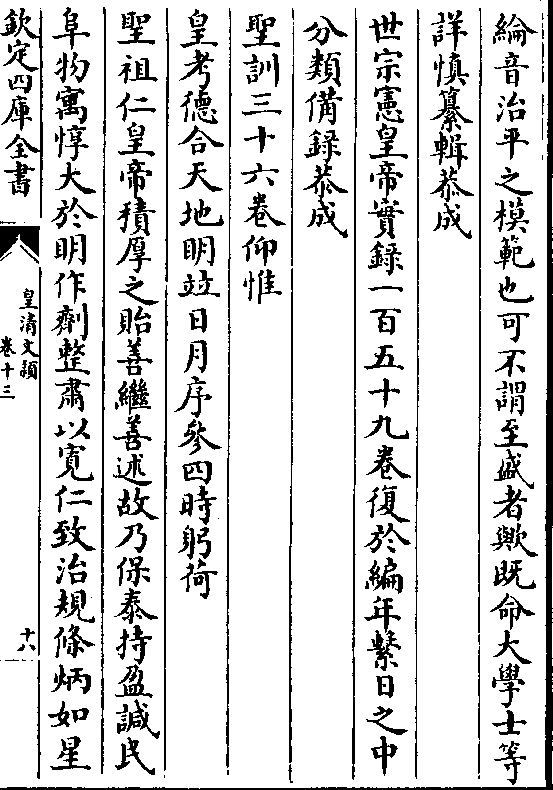 綸音治平之模範也可不謂至盛者歟既命大學士等
詳慎纂輯恭成
世宗憲皇帝實録一百五十九卷復於編年繫日之中
分類備録恭成
聖訓三十六卷仰惟
皇考德合天地明竝日月序參四時躬荷
聖祖仁皇帝積厚之貽善繼善述故乃保泰持盈諴民
阜物寓惇大於明作劑整肅以寛仁致治規條炳如星
欽定四庫全書
皇清文穎
卷十三
十八